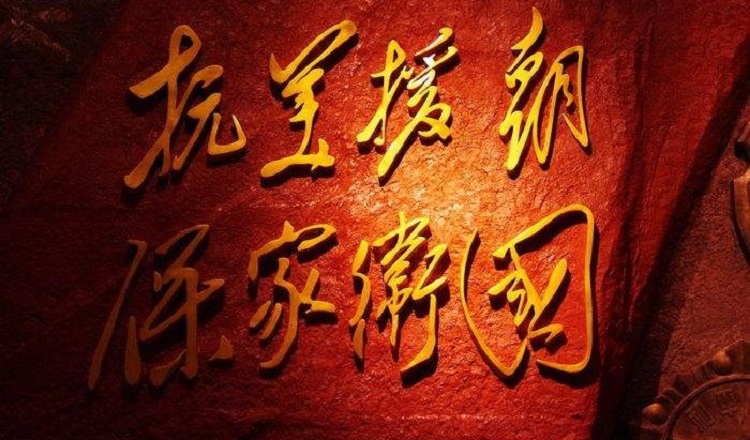 抗美援朝
保家衛國